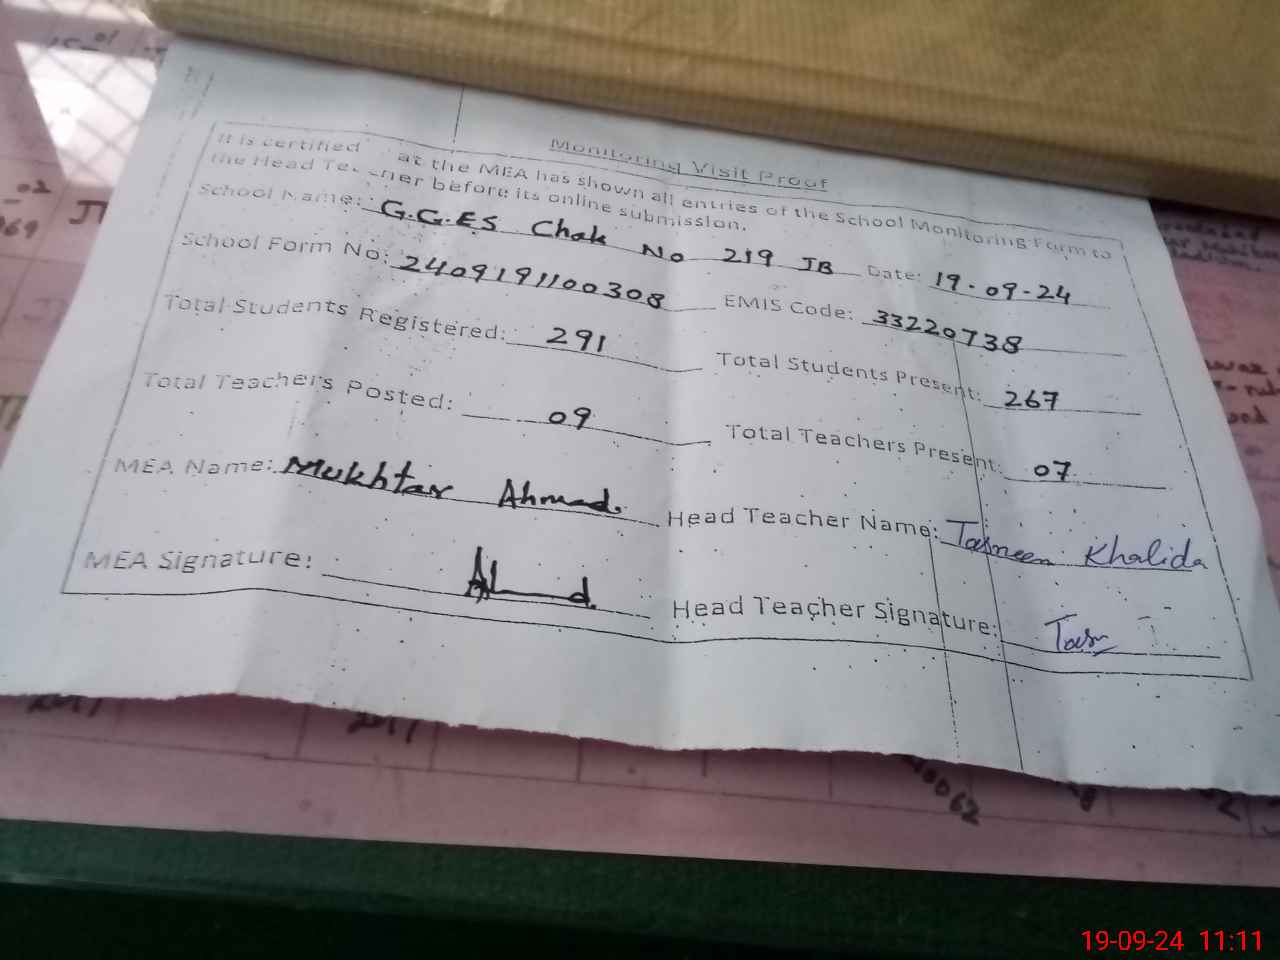 Monitoring Visit Proof
It is certified at the MEA has shown all entries of the School Monitoring Form to
the Head Te ner before its online submission.
School Name: G.G.ES Chak No 219 JB Date: 19-09-24
School Form No: 2409191100308 EMIS Code: 33220738
Total Students Registered: 291 Total Students Present: 267
Total Teachers Posted: 09 Total Teachers Present: 07
MEA Name: Mukhtar Ahmad. Head Teacher Name: Tasneem Khalida
MEA Signature: Ahmad. Head Teacher Signature: Tas
19-09-24 11:11